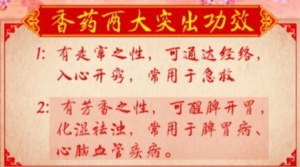 香药两大突出功效
1: 有走窜之性，可通达经络，
入心开窍，常用于急救
2: 有芳香之性，可醒脾开胃，
化湿祛浊，常用于脾胃病、
心脑血管疾病。